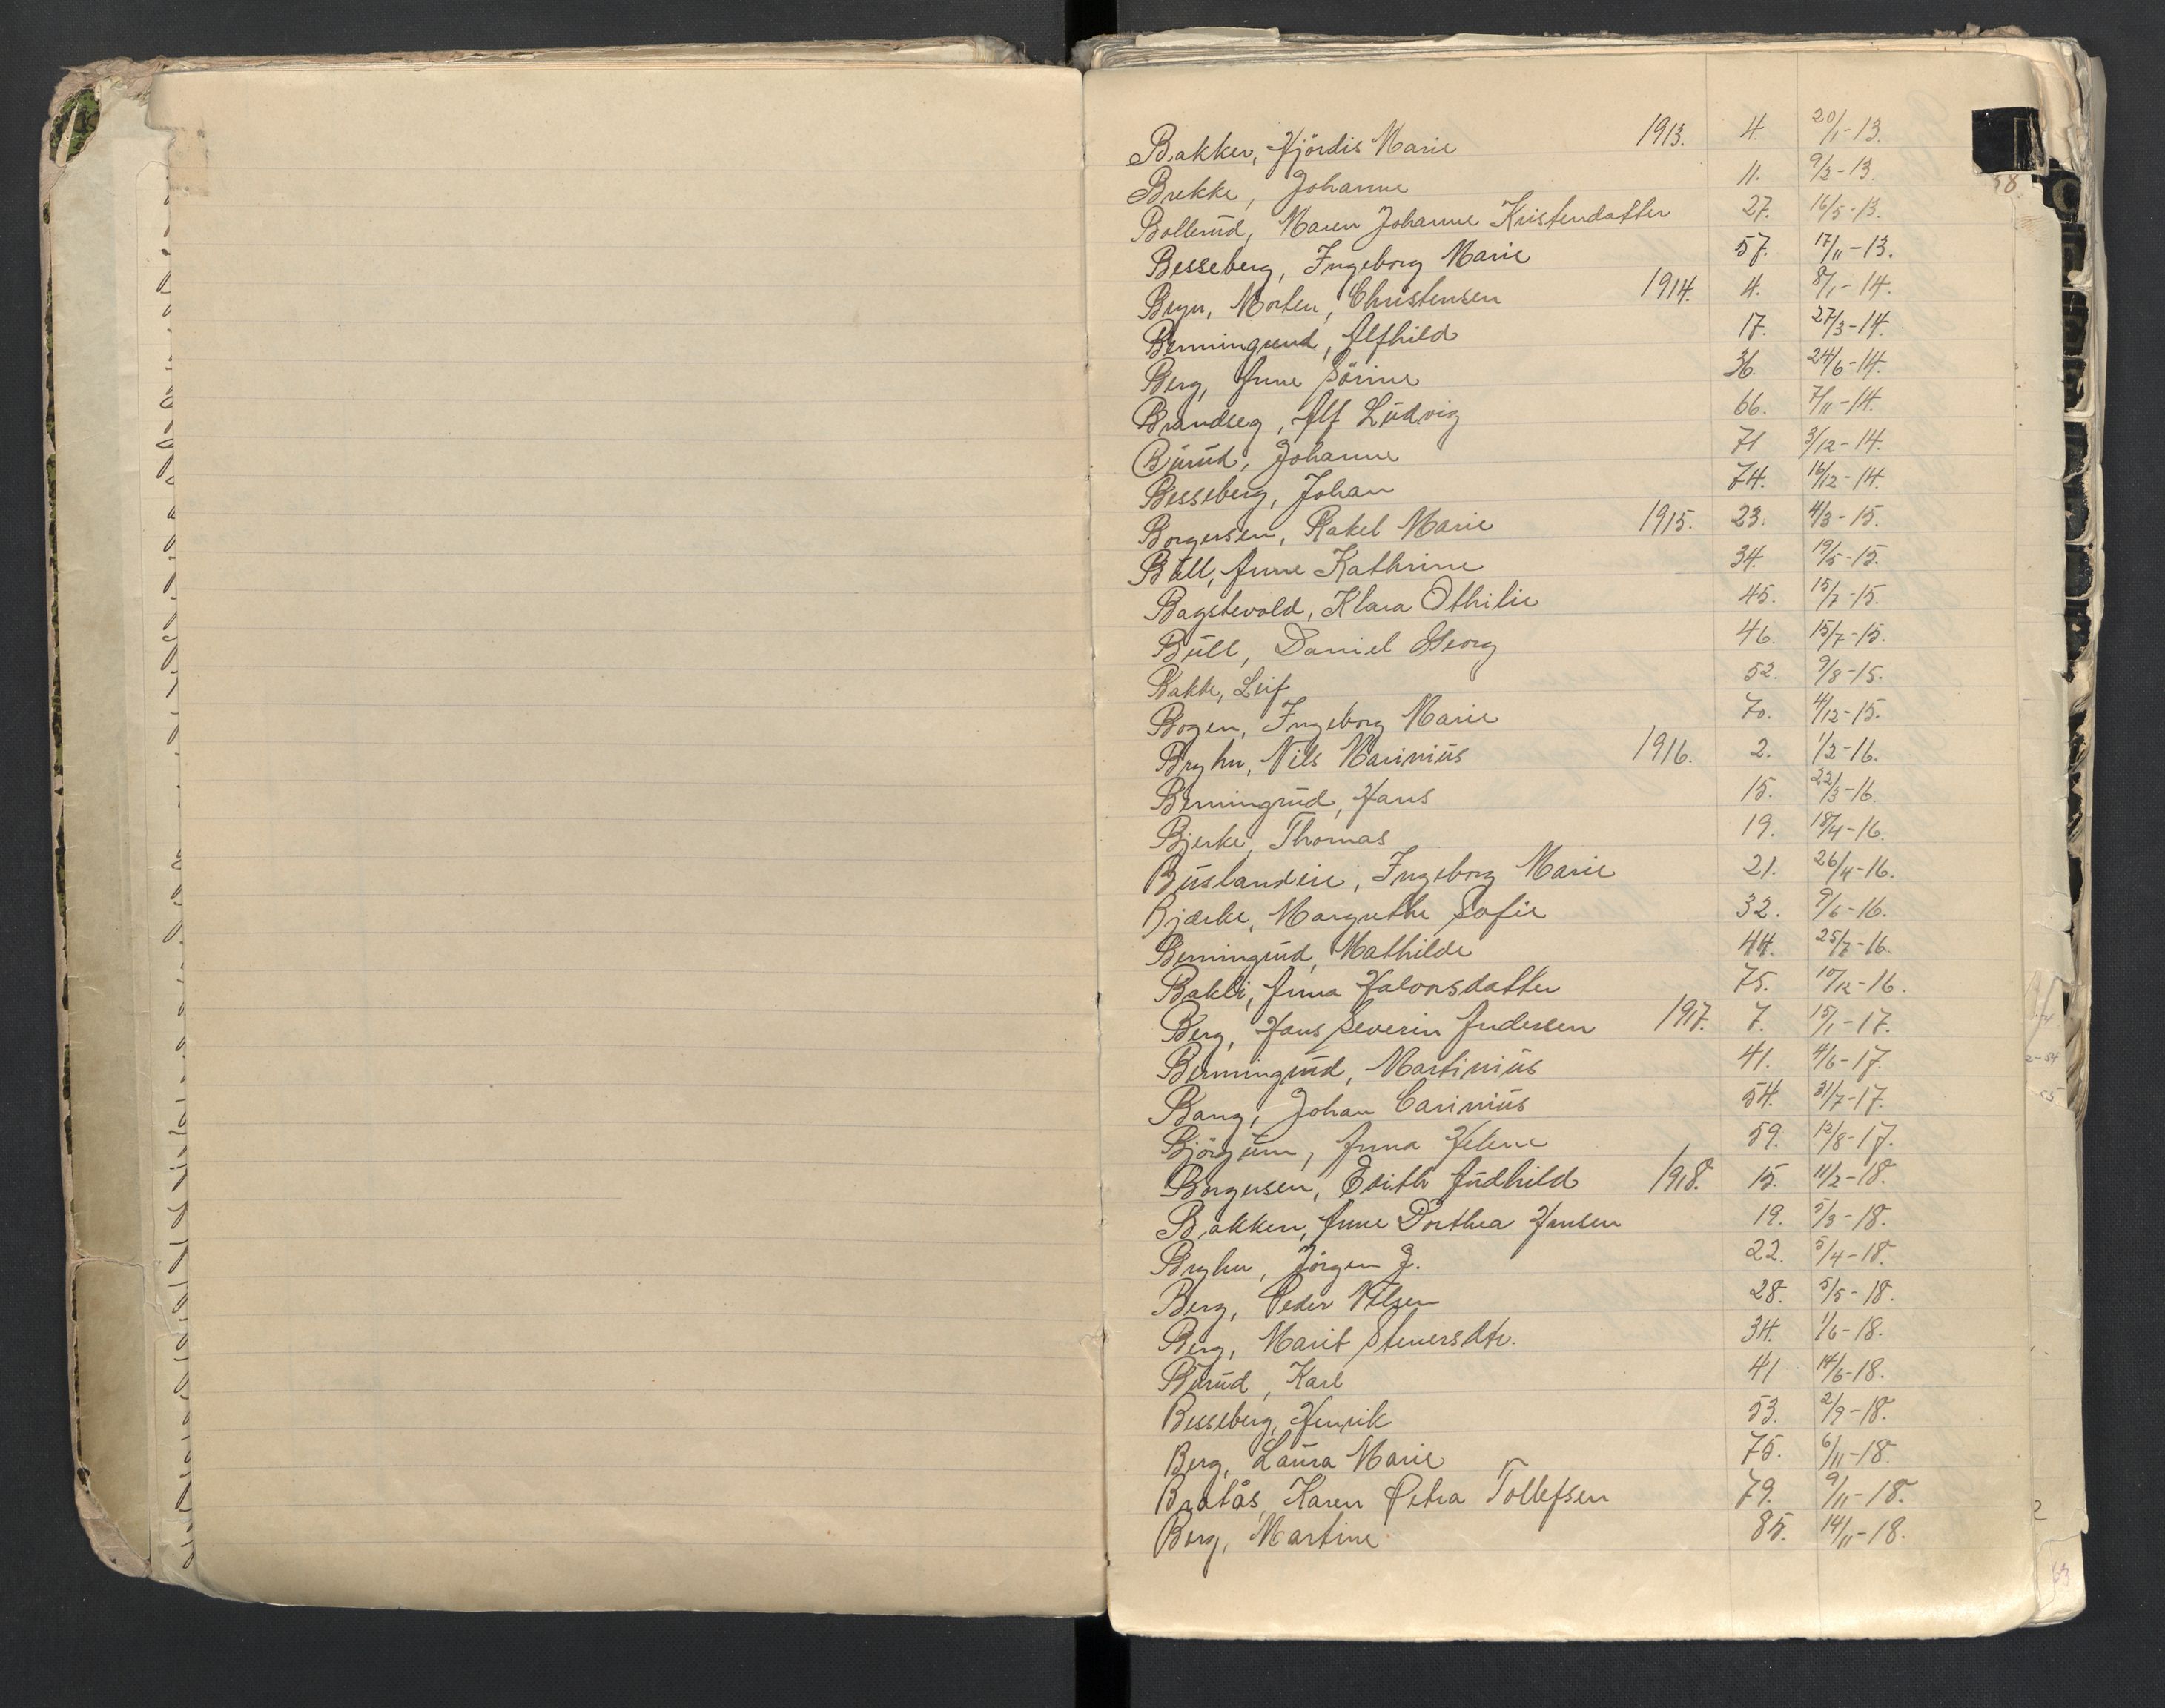 Bakken, Hjördis Marie 1913. 4. 20/1-13.
Brekke, Johanne 11. 9/2-13.
Bollerud, Maren Johanne Kristendatter 27. 16/5-13.
Besseberg, Ingeborg Marie 57. 17/11-13.
Bryn, Morten, Christensen 1914. 4. 8/1-14.
Benningrud, Alfhild 17. 27/3-14.
Berg, Anne Sörine 36. 24/6-14.
Brandseg, Alf Ludvig 66. 7/11-14.
Burud, Johanne 71 3/12-14.
Besseberg, Johan 74. 16/12-14.
Borgersen, Rakel Marie 1915. 23. 4/3-15.
Bull, Anne Kathrine 34. 19/5-15.
Bagstevold, Klara Othilie 45. 15/7-15.
Bull, Daniel Georg 46. 15/7-15.
Bakke, Leif 52. 9/8-15.
Bogen, Ingeborg Marie 70. 4/12-15.
Bryhn, Nils Marinius 1916. 2. 1/2-16.
Benningrud, Hans 15. 22/3-16.
Bjerke, Thomas 19. 18/4-16.
Buslandeie, Ingeborg Marie 21. 26/4-16.
Bjerke, Margrethe Sofie 32. 9/6-16.
Benningrud, Mathilde 44. 25/7-16.
Bakli, Anna Halvorsdatter 75. 10/12-16.
Berg, Hans Severin Andersen 1917. 7. 15/1-17.
Benningrud, Martinius 41. 4/6-17.
Bang, Johan Carinius 54. 31/7-17.
Björgum, Anna Helene 59. 12/8-17.
Borgersen, Edith Audhild 1918. 15. 11/2-18.
Bakken, Anne Dorthea Hansen 19. 5/3-18.
Bryhn, Jörgen J. 22. 5/4-18.
Berg, Peder Nilsen 28. 5/5-18.
Berg, Marit Stenersdtr. 34. 1/6-18.
Burud, Karl 41 14/6-18.
Besseberg, Henrik 53. 2/9-18.
Berg, Laura Marie 75. 6/11-18.
Bratås, Karen Petra Tollefsen 79. 9/11-18.
Berg, Martine 85. 14/11-18.